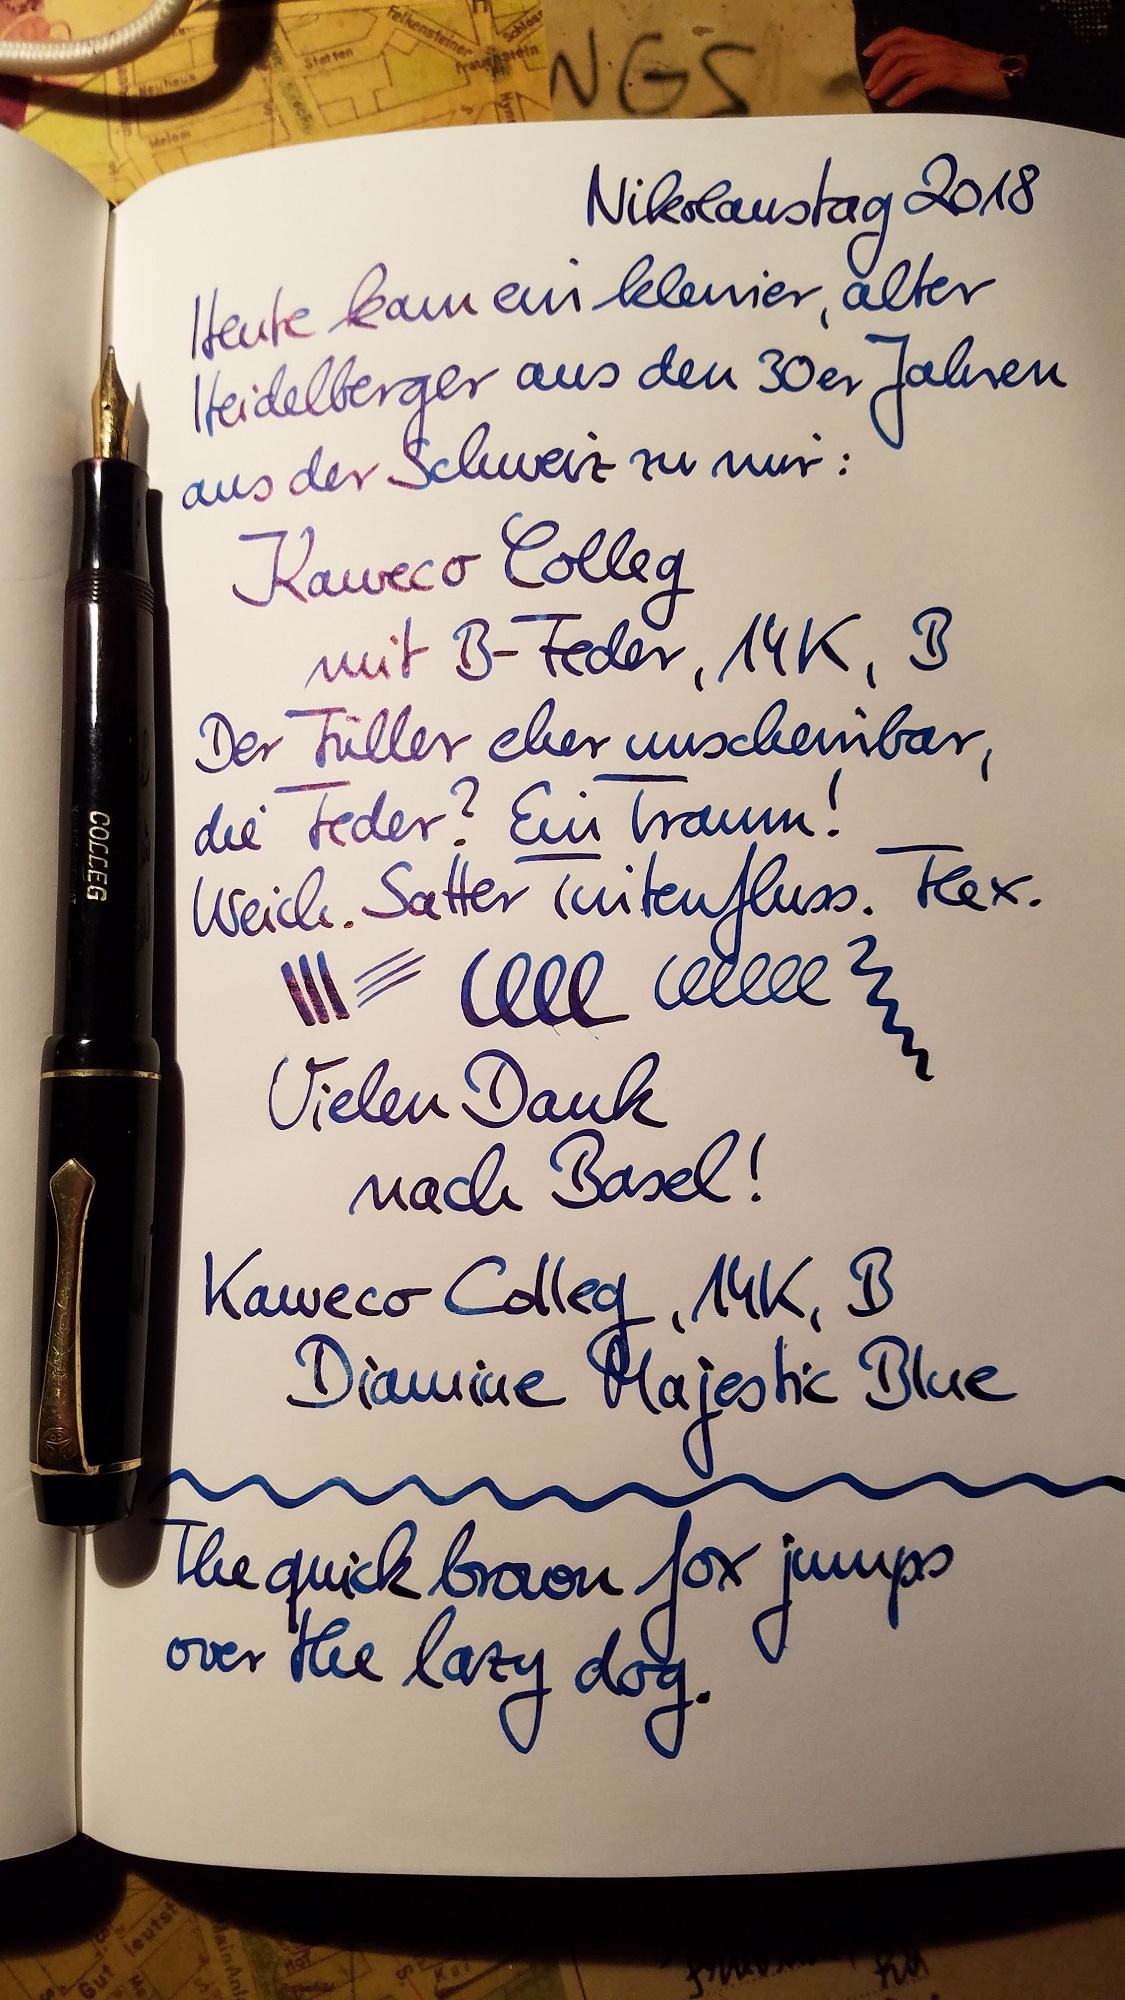 Falkensteiner
Schloss
Stetten
Frauenstein
Neuhaus
Melem
NGS
Nikolaustag 2018
Heute kam ein kleiner, alter
Heidelberger aus den 30er Jahren
aus der Schweiz zu mir:
Kaweco Colleg
mit B-Feder, 14K, B
Der Füller eher unscheinbar,
die Feder? Ein Traum!
Weich. Satter Tintenfluss. Flex.
Vielen Dank
nach Basel!
Kaweco Colleg, 14K, B
Diamine Majestic Blue
The quick brown fox jumps
over the lazy dog.
COLLEG